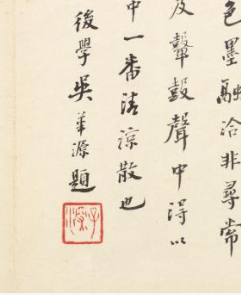 色墨融洽非尋常
及鼙鼓聲中得以
中一番清涼散也
後學吳華源題
子深